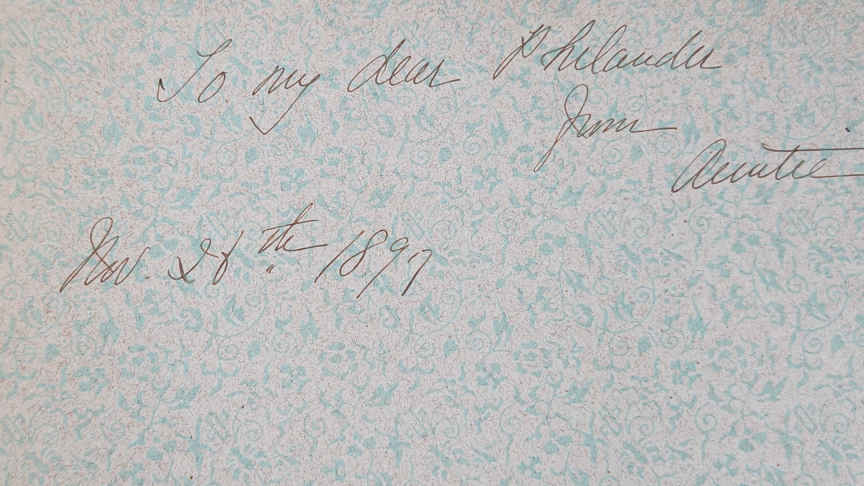 To my dear Philander
From
Auntie
Nov. 28th 1897